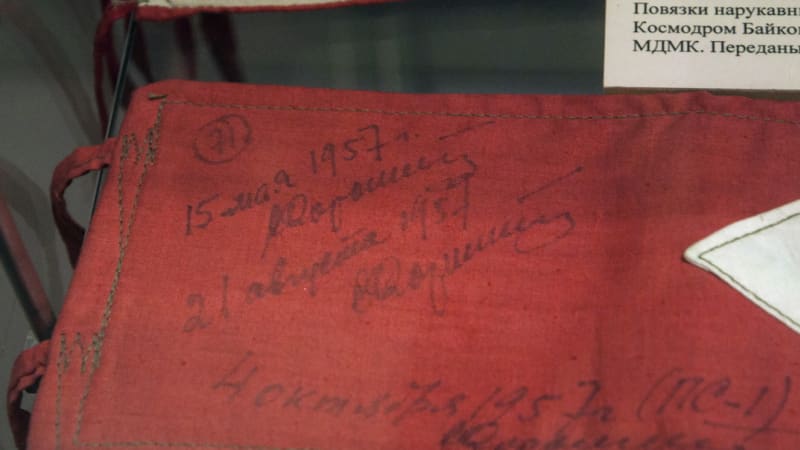 Повязки нарукавн
Космодром Байко
МДМК. Переданы
71
15 мая 1957 г.
21 августа 1957
4 октября 1957 г (ПС-1)